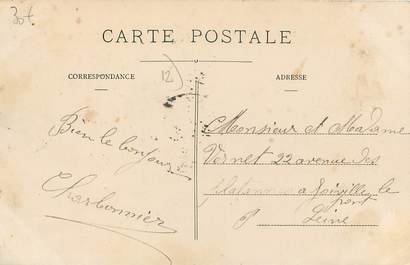 30f
CARTE POSTALE
12
CORRESPONDANCE
ADRESSE
Bien le bonjour
Charbonnier
Monsieur et Madame
Vernet 22 avenue des
platannes a Joinville le
pont
Seine